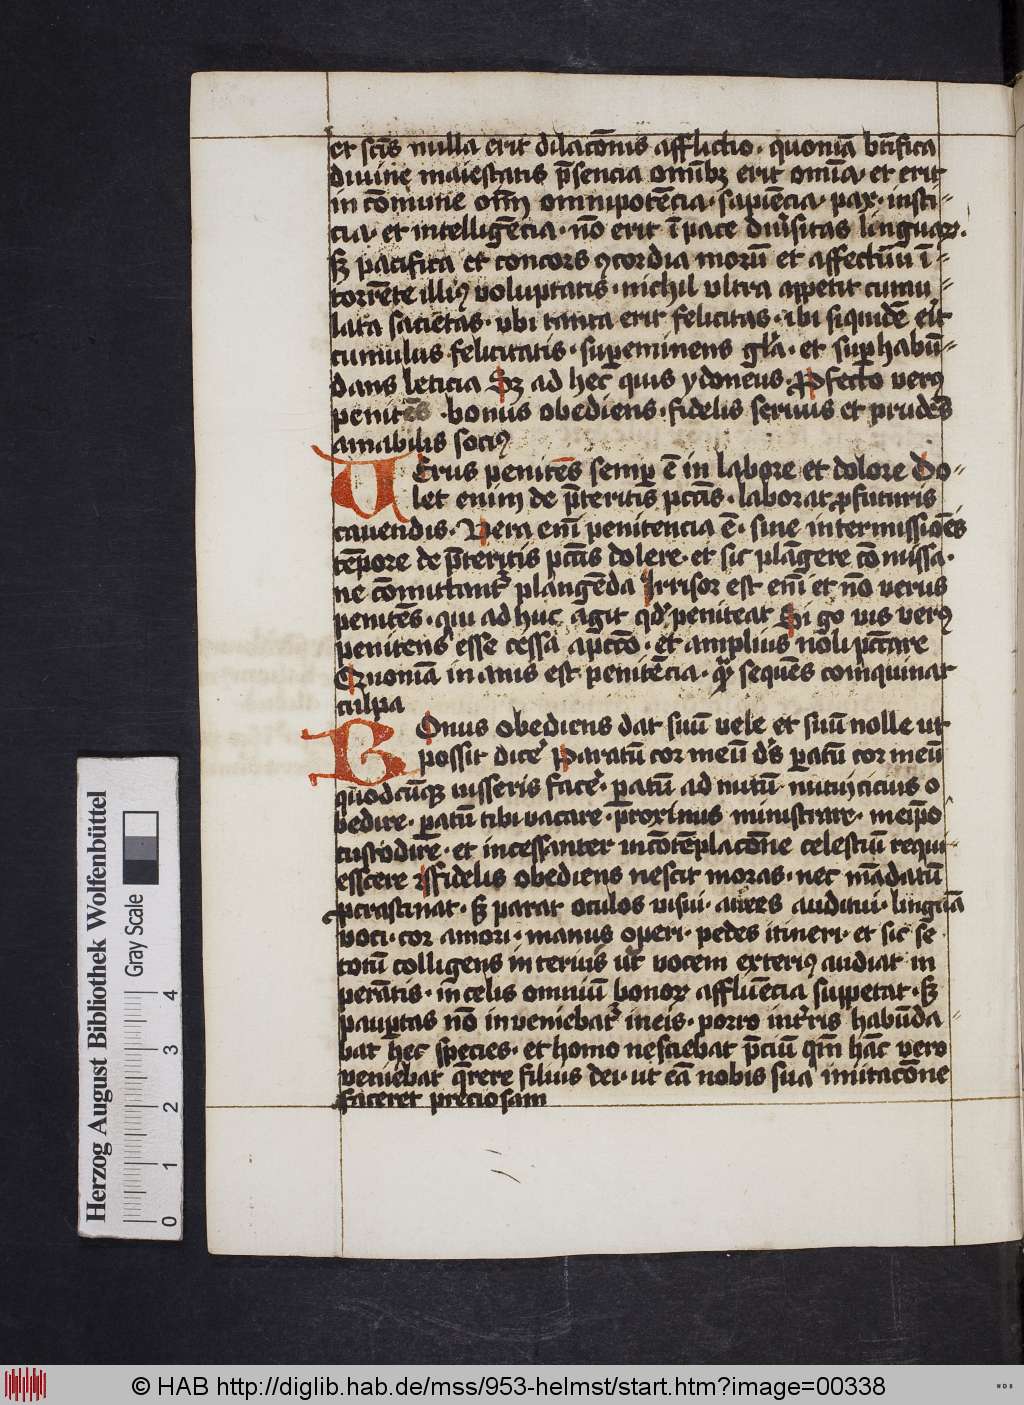 et sctis nulla erit dilac̄onis afflictio · quoniā btīfica
divine maiestatis p̄sencia omībꝫ erit omīa · et erit
in cōmune oīm omnipotēcia · sapiēcia · pax · iusti-
cia · et intelligēcia · nō erit ī pace diu̾sitas linguaꝝ .
sꝫ pacifica et concors ꝯcordia morū et affectuū ī-
torrēte illiꝰ voluptatis · nichil ultra appetit cumu-
lata sacietas · vbi tanta erit felicitas · ibi siquidē erit
cumulus felicitatis · sup̲eminens gl̄a · et sup̲habū-
dans leticia Sꝫ ad hec quis ydoneus · ꝓfecto verꝰ
penitēs · bonus obediens · fidelis servus et prudēs
amabilis sociꝰ
Verus penitēs semp̲ ē in labore et dolore Do-
let enim de p̄teritis pctīs · laborat ꝓ futuris
cauendis · Vera enī penitencia ē · sine intermissiōe
tēpore de p̄teritis pctīs dolere · et sic plāgere cōmissa ·
ne cōmittant̾ plangēda Irrisor est enī et nō verus
penitēs · qui ad huc agit qd̾ peniteat Si g̊ vis verꝰ
penitens esse cessa a pctō · et amplius noli pctāre
Quoniā inanis est penitēcia · quā sequēs coinquinat
culpa
Bonus obediens dat suū velle et suū nolle ut
possit dice̾ Paratū cor meū ds̄ p̲atū cor meū
quodcūqꝫ iusseris face̾ · p̲atū ad nutū · nutui cicius o
bedire · p̲atū tibi vacare · proximis ministrare · meip̄o
custodire · et incessanter in cōtēplac̄one celestiū requi-
escere fidelis obediens nescit moras · nec mādatū
ꝓcrastinat · sꝫ parat oculos visui · aures auditui · linguā
voci · cor amori · manus operi · pedes itineri · et sic se
totū colligens interius ut vocem exteriꝰ audiat im
perātis · in celis omniū bonoꝝ affluēcia suppetat · sꝫ
paup̲tas nō inveniebat̾ in eis · porro in t̾ris habūda-
bat hec species · et homo nesciebat p̄ciū hāc vero
veniebat q̄rere filius dei · ut eā nobis sua imitac̄one
faceret preciosam
Herzog August Bibliothek Wolfenbüttel
Gray Scale
0 1 2 3 4
© HAB http://diglib.hab.de/mss/953-helmst/start.htm?image=00338